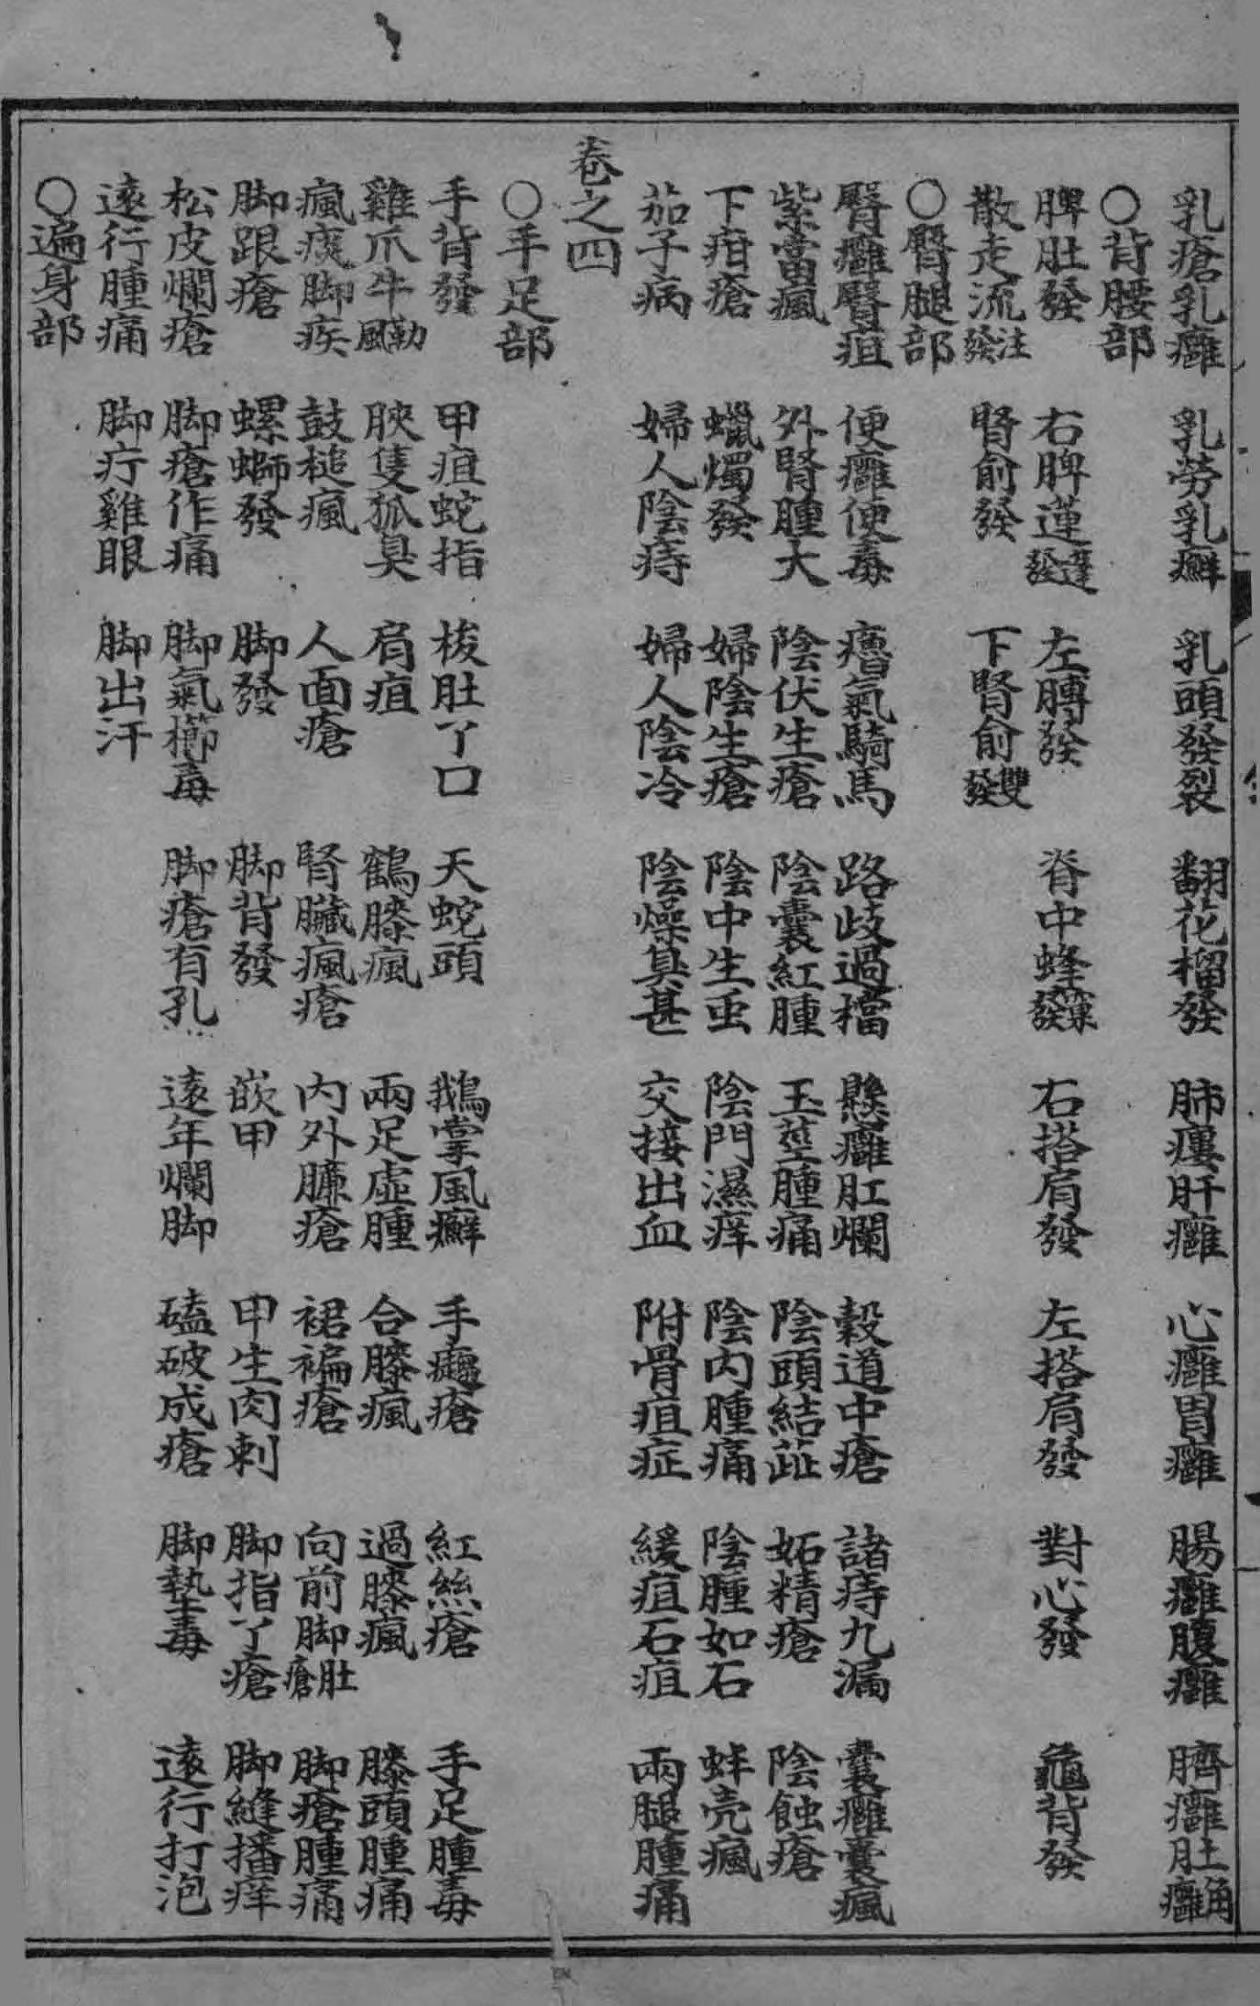 乳瘡乳癰　乳勞乳癬　乳頭發裂　翻花榴發　肺癰肝癰　心癰胃癰　腸癰腹癰　臍癰肚角癰
〇背腰部
脾肚發　右脾蓮蓬發　左膊發　脊中蜂窠發　右搭肩發　左搭肩發　對心發　龜背發
散走流注發　腎俞發　下腎俞雙發
〇臀腿部
臀癰臀疽　便癰便毒　氣騎馬　路歧過檔　懸癰肛爛　穀道中瘡　諸痔九漏　囊癰囊瘋
紫當瘋　外腎腫大　陰伏生瘡　陰囊紅腫　玉莖腫痛　陰頭結　妬精瘡　陰蝕瘡
下疳瘡　蠟燭發　婦陰生瘡　陰中生虫　陰門濕痒　陰內腫痛　陰腫如石　蚌壳瘋
茄子病　婦人陰痔　婦人陰冷　陰燥臭甚　交接出血　附骨疽症　緩疽石疽　兩腿腫痛
卷之四
〇手足部
手背發　甲疽蛇指　梭肚了口　天蛇頭　鵝掌風癬　手瘡　紅絲瘡　手足腫毒
雞爪牛勒風　腋隻狐臭　肩疽　鶴膝瘋　兩足虛腫　合膝瘋　過膝瘋　膝頭腫痛
瘋痰脚疾　鼓槌瘋　人面瘡　腎臟瘋瘡　內外臁瘡　裙褊瘡　向前脚肚瘡　脚瘡腫痛
脚跟瘡　螺螄發　脚發　脚背發　嵌甲　甲生肉刺　脚指了瘡　脚縫播痒
松皮爛瘡　脚瘡作痛　脚氣櫛毒　脚瘡有孔　遠年爛脚　磕破成瘡　脚墊毒　遠行打泡
遠行腫痛　脚疔雞眼　脚出汗
〇遍身部